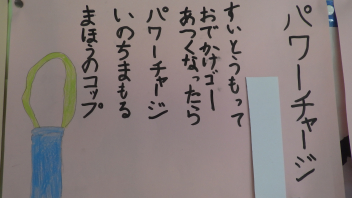 パワーチャージ
すいとうもって
おでかけゴー
あつくなったら
パワーチャージ
いのちまもる
まほうのコップ